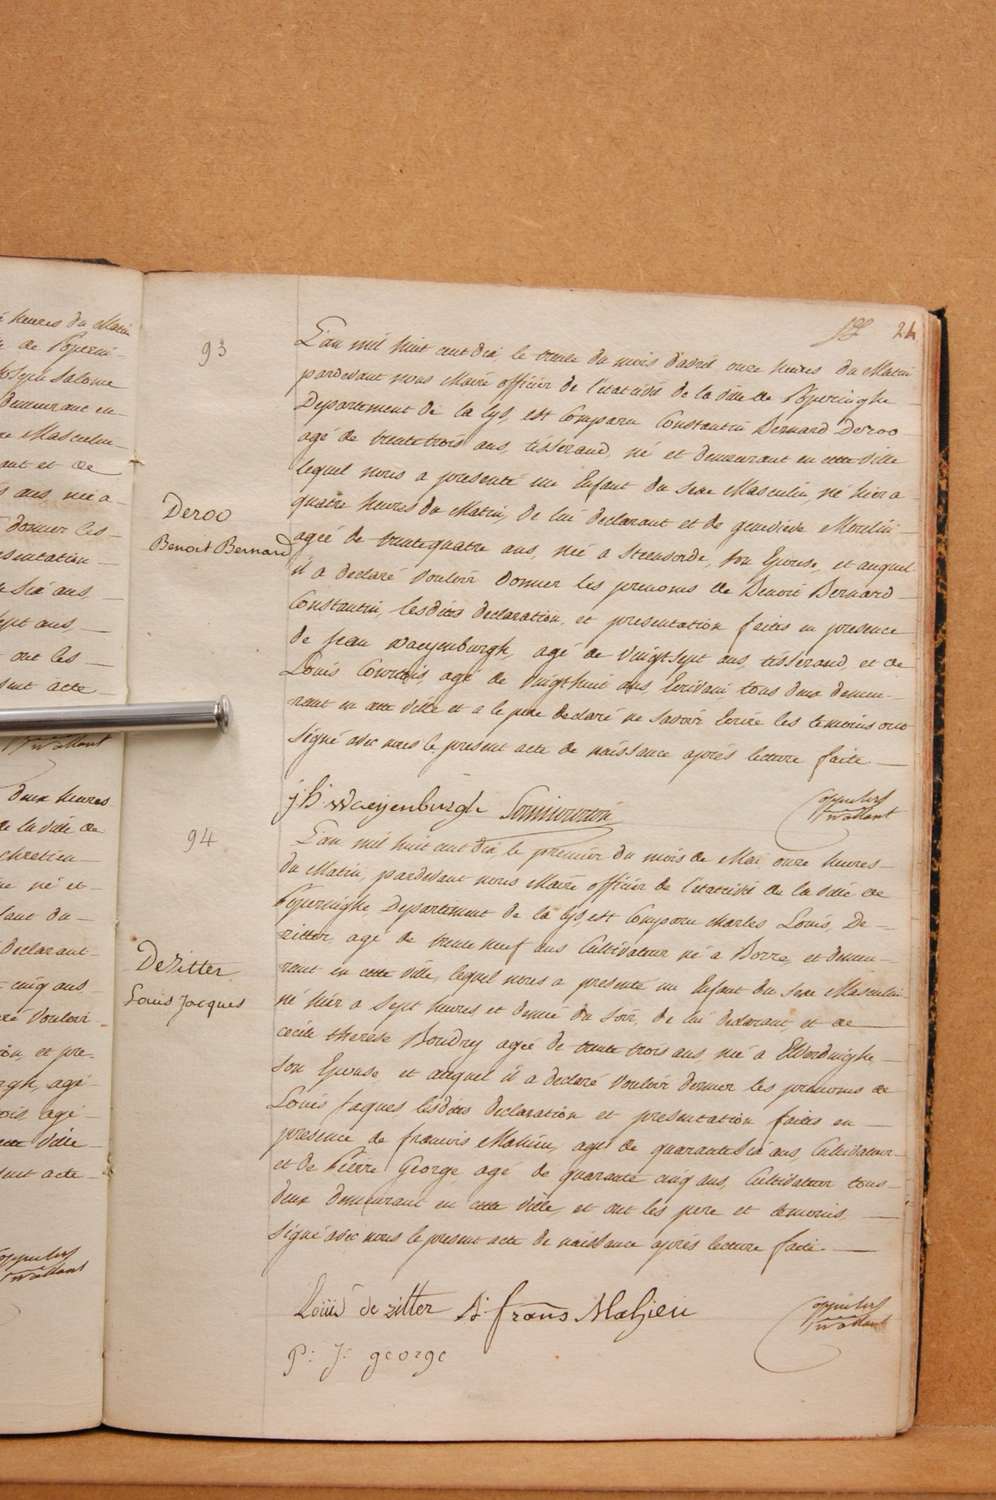 é heures du Matin
de Poperin-
Joseph Salome
demeurant en-
xe Masculin
ant et de
s ans, née a-
donner les-
esentation-
Six ans
sept ans,
ont les
sent acte
Wallant
deux heures
de la Ville de
chretien
né et-
fant du-
Declarant-
cinq ans
ré Vouloir
on, et pre-
rgh, agé
ois agé
cette Ville
sent acte-
24
93
Deroo
Benoit Bernard
L'an mil huit cent dix, le trente du mois d'avril onze heures du Matin
pardevant nous Maire officier de l'état civil de la Ville de Poperinghe
Departement de la Lys, est Comparu Constantin Bernard Deroo
agé de trente trois ans, tisserand, né et demeurant en cette Ville
lequel nous a presenté un Enfant du sexe Masculin né hier a-
quatre heures du Matin, de lui declarant et de genevieve Moulin
agée de trente quatre ans, née a Steenvorde, Son Epouse, et auquel
il a declaré Vouloir Donner les prenoms de Benoit Bernard
Constantin, lesdites declaration, et presentation faites en presence
de Jean Waeyenburgh, agé de Vingt Sept ans, tisserand, et de
Louis Courtois agé de Vingt huit ans Ecrivain tous deux demeu-
rant en cette Ville et a le pere declaré ne Savoir Ecrire les temoins ont
Signé avec nous le present acte de naissance après lecture faite
j b Waeyenburgh
Wallant
94
DeZitter
Louis Jacques
L'an mil huit cent dix le premier du mois de Mai onze heures
du Matin, pardevant nous Maire officier de l'état civil de la Ville de
Poperinghe Departement de la Lys, est Comparu Charles Louis, De-
zitter, agé de trente neuf ans Cultivateur né a Borre, et demeu-
rant en cette Ville, lequel nous a presenté un Enfant du Sexe Masculin
né hier a Sept heures et demie du Soir, de lui declarant et de
cecile therese Boudry agée de trente trois ans née a Elverdinghe
Son Epouse et auquel il a declaré Vouloir donner les prenoms de
Louis Jaques lesdites declaration et presentation faites en
presence de francois Mahieu, agé de quarante Six ans Cultivateur
et de Pierre George agé de quarante cinq ans, Cultivateur tous-
deux demeurant en cette Ville et ont les pere et temoins
Signé avec nous le present acte de naissance après lecture faite
Louis de zitter frans Mahieu
P: J: george
Wallant